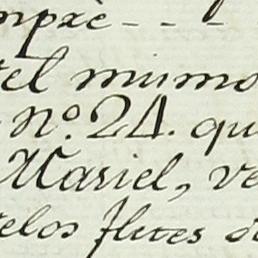 mpre - - -
el mumo
Nº. 24. qu
Mariel, ve
elos fletes d